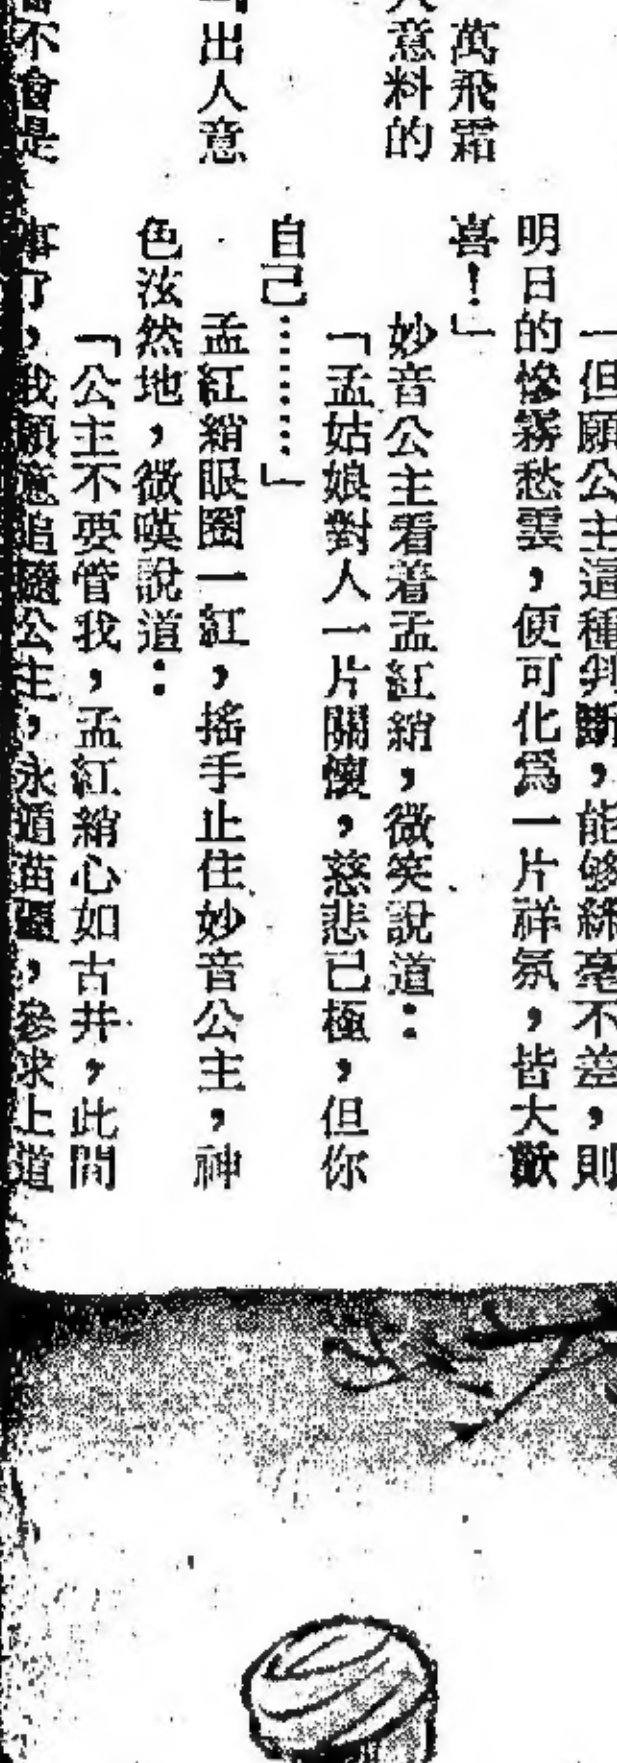 萬飛霜
意料的
出人意
不會是
「但願公主這種判斷，能够絲毫不差，則
明日的慘霧愁雲，便可化爲一片祥氛，皆大歡
喜！」
妙音公主看着孟紅綃，微笑說道：
「孟姑娘對人一片關懷，慈悲已極，但你
自己………」
孟紅綃眼圈一紅，搖手止住妙音公主，神
色泫然地，微嘆說道：
「公主不要管我，孟紅綃心如古井，此間
事了，我願意追隨公主，永遁苗疆，參求上道